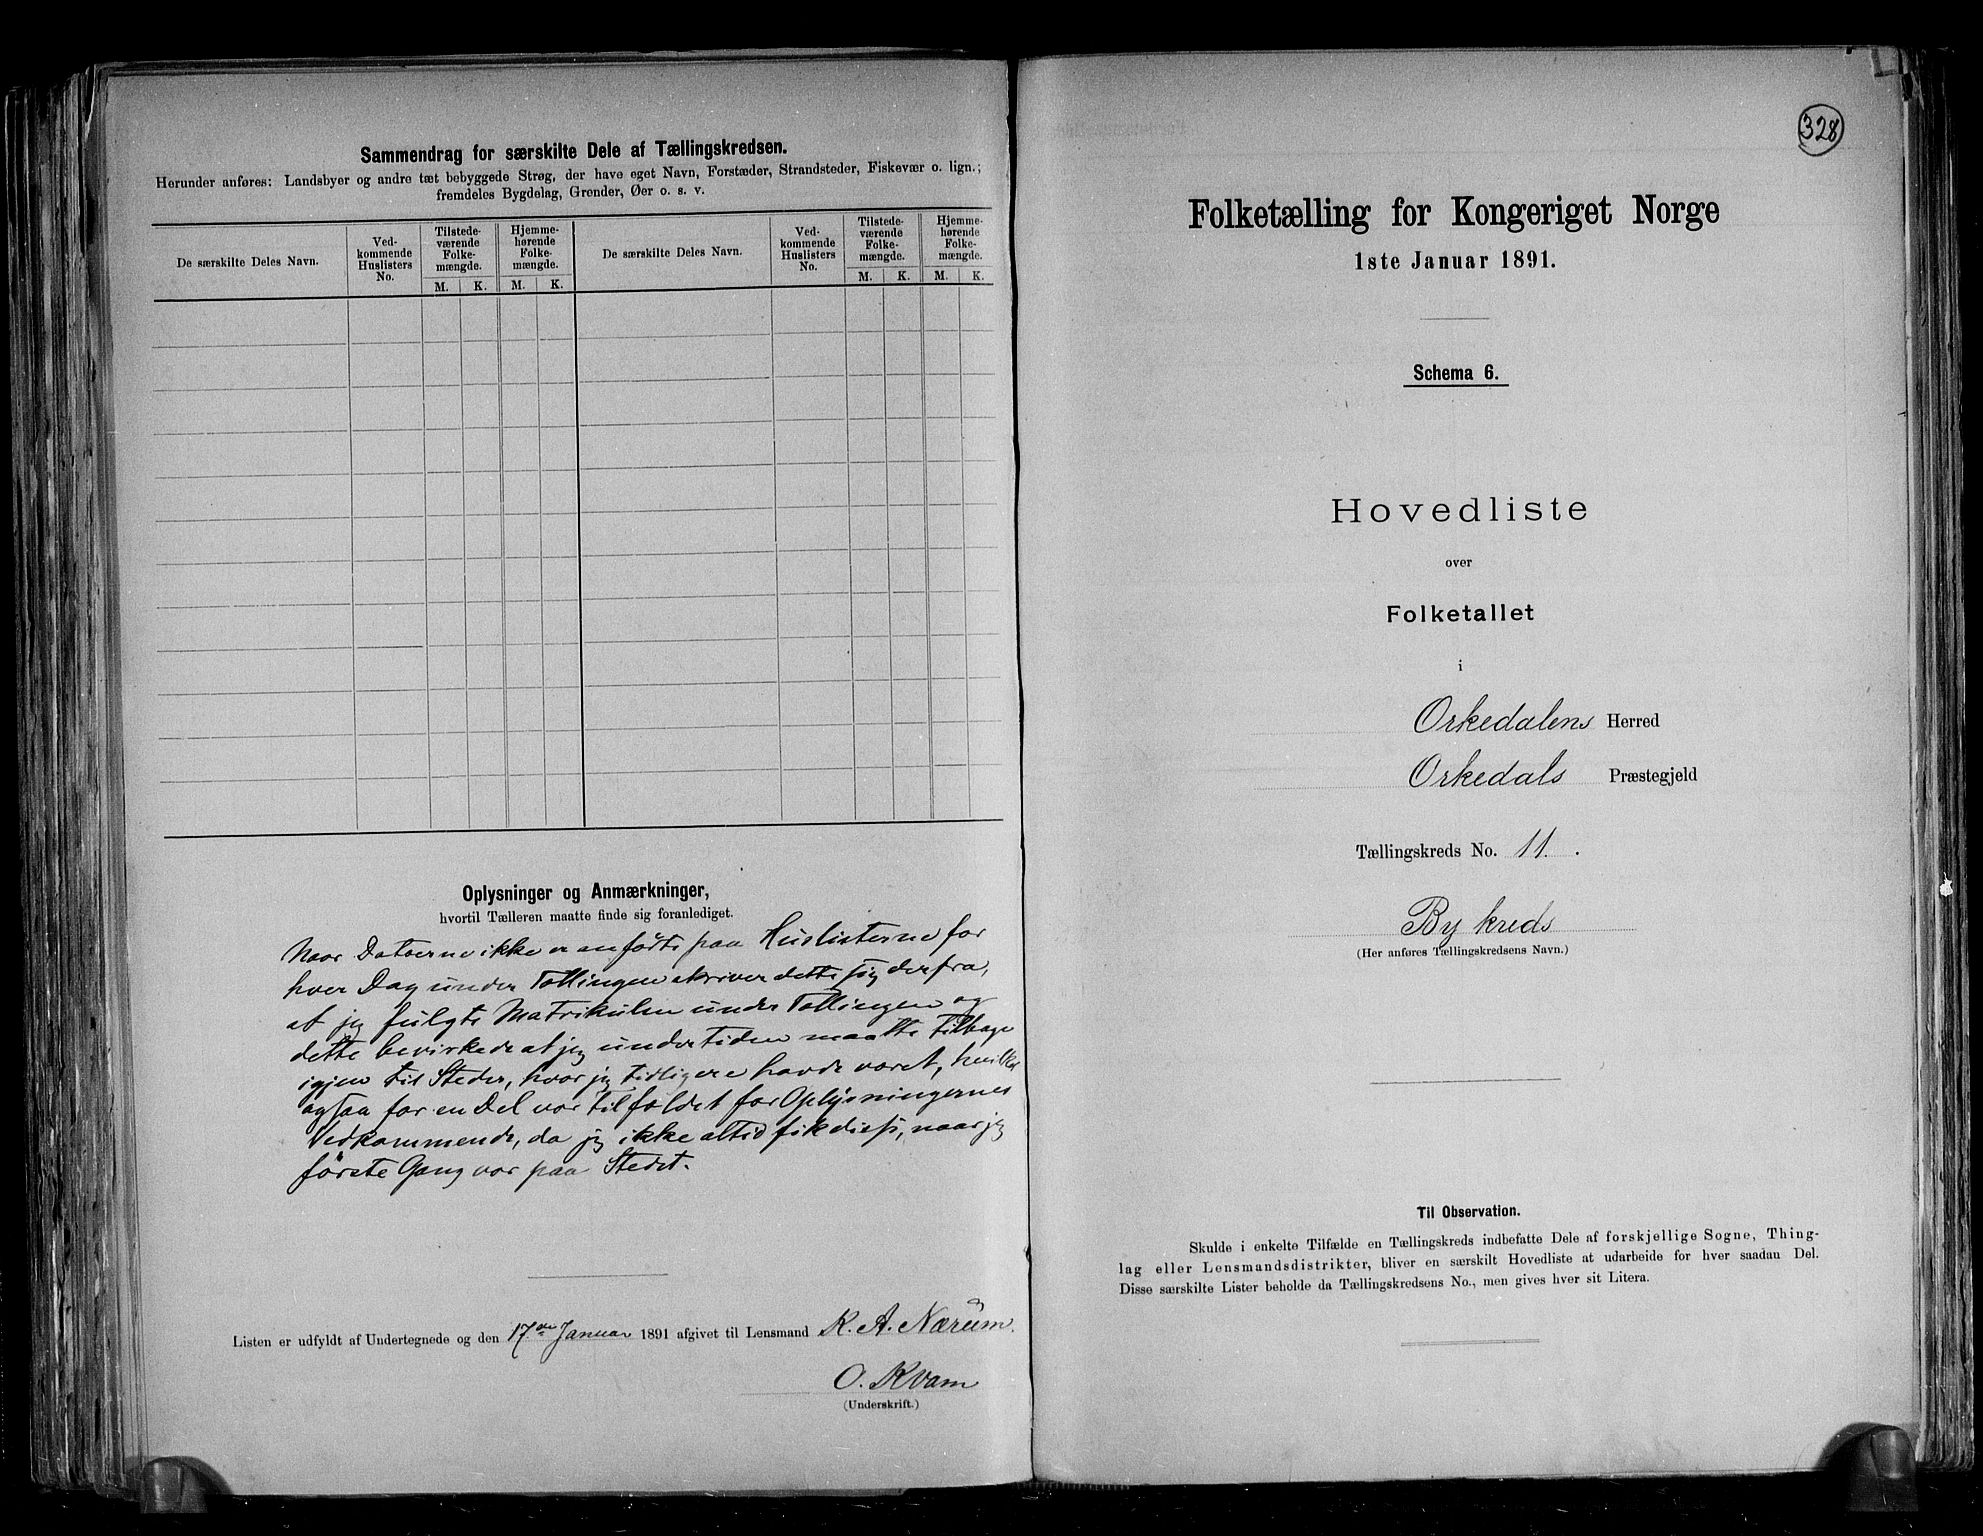 Sammendrag for særskilte Dele af Tællingskredsen.
Herunder anføres: Landsbyer og andre tæt bebyggede Strøg, der have eget Navn, Forstæder, Strandsteder, Fiskevær o. lign.;
fremdeles Bygdelag, Grender, Øer o. s. v.
De særskilte Deles Navn.
Ved-
kommende
Huslisters
No.
Tilstede-
værende
Folke-
mængde.
Hjemme-
hørende
Folke-
mængde.
De særskilte Deles Navn.
Ved-
kommende
Huslisters
No.
Tilstede-
værende
Folke-
mængde.
Hjemme-
hørende
Folke-
mængde.
M. K. M. K. M. K. M. K.
Oplysninger og Anmærkninger,
hvortil Tælleren maatte finde sig foranlediget.
Naar Datoerne ikke er anførte paa Huslisterne for
hver Dag under Tællingen skriver dette sig derfra,
at jeg fulgte Matrikulen under Tællingen og
dette bevirkede at jeg undertiden maatte tilbage
igjen til Steder, hvor jeg tidligere havde været, hvilket
ogsaa for en Del var tilfældet for Oplysningernes
Vedkommende, da jeg ikke altid fik disse, naar jeg
første Gang var paa Stedet.
Listen er udfyldt af Undertegnede og den 17de Januar 1891 afgivet til Lensmand K. A. Nærum.
O. Kvam
(Underskrift.)
328
Folketælling for Kongeriget Norge
1ste Januar 1891.
Schema 6.
Hovedliste
over
Folketallet
i
Orkedalens Herred
Orkedals Præstegjeld
Tællingskreds No. 11.
By kreds
(Her anføres Tællingskredsens Navn.)
Til Observation.
Skulde i enkelte Tilfælde en Tællingskreds indbefatte Dele af forskjellige Sogne, Thing-
lag eller Lensmandsdistrikter, bliver en særskilt Hovedliste at udarbeide for hver saadan Del.
Disse særskilte Lister beholde da Tællingskredsens No., men gives hver sit Litera.